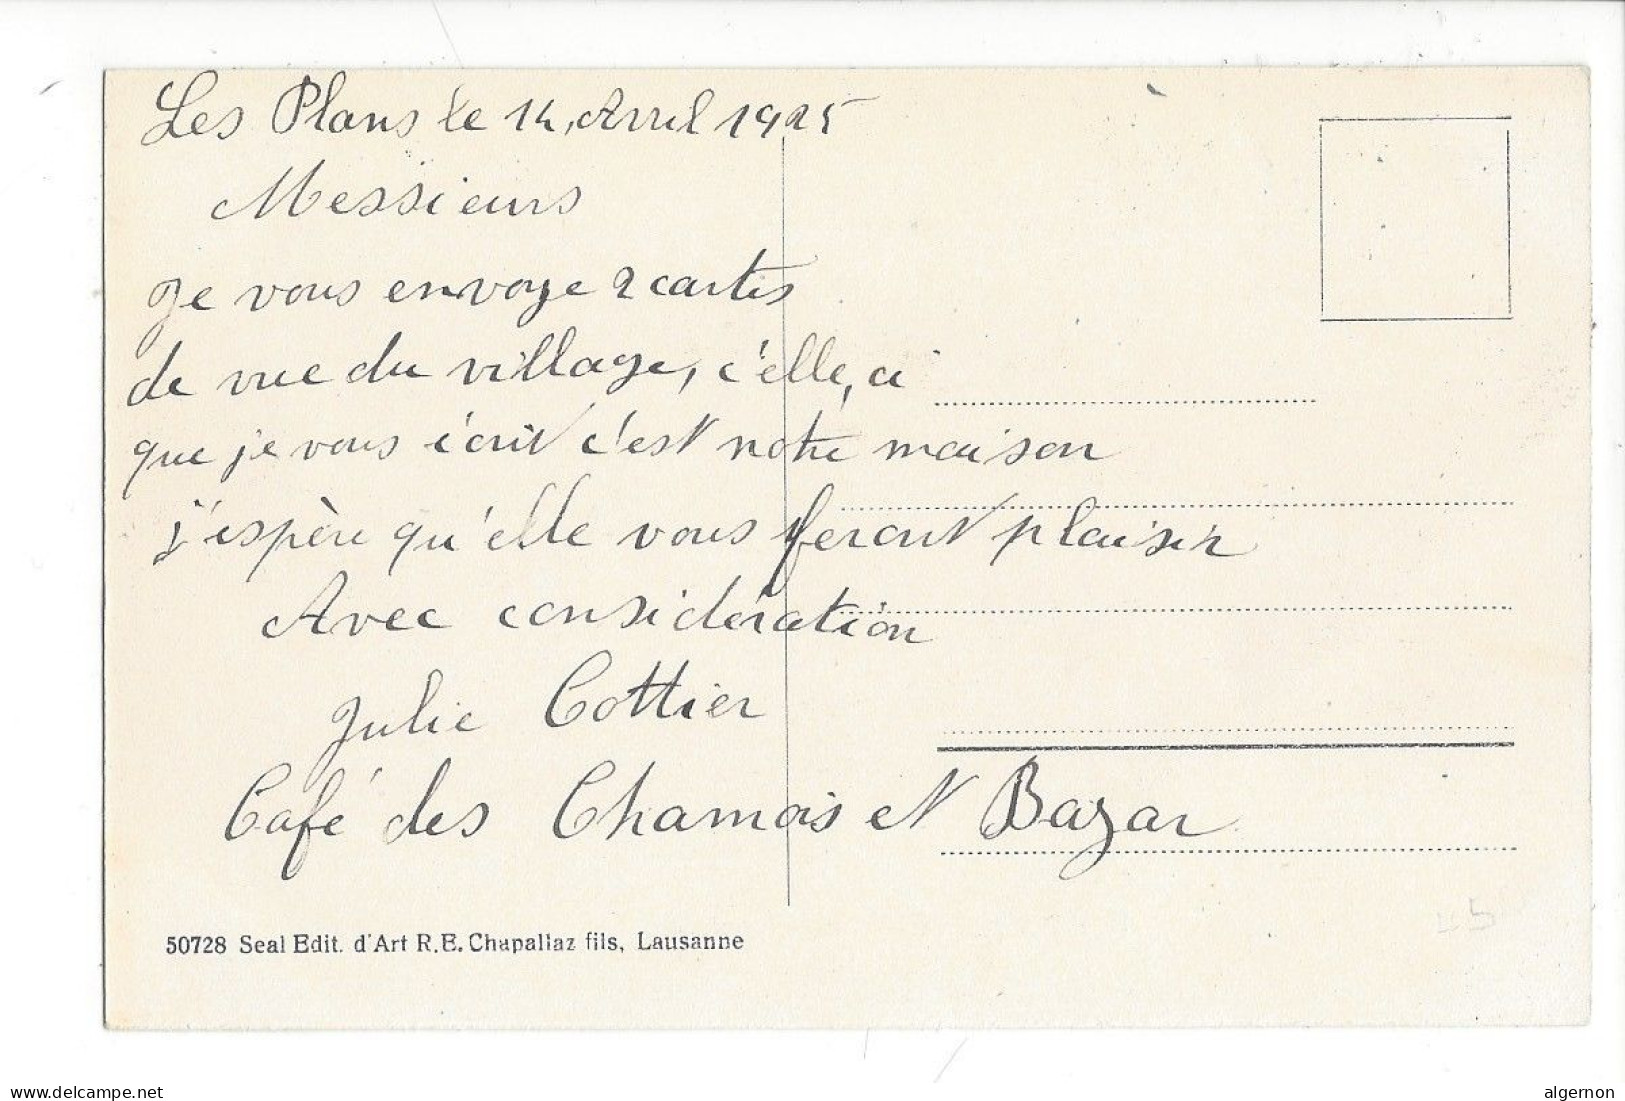 Les Plans le 14 Avril 1925
Messieurs
Je vous envoye 2 cartes
de vue du village, c'elle, ci
que je vous écrit c'est notre maison
j'espère qu'elle vous feront plaisir
Avec considération
Julie Cottier
Café des Chamois et Bazar
50728 Seal Edit. d'Art R. E. Chapallaz fils, Lausanne
delcampe.net
algernon